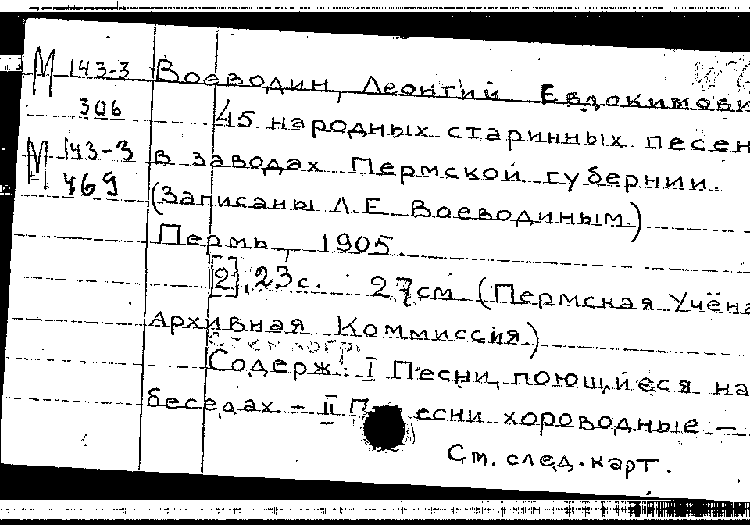 М 143-3 Воеводин, Леонтий Евдокимови
306 45 народных старинных песен
М 143-3 в заводах Пермской губернии.
469 (Записаны Л.Е. Воеводиным)
Пермь, 1905.
[2], 23 с. 27 см (Пермская Учёна
Архивная Коммиссия.)
Стеклогр.
Содерж.: I Песни, поющиеся на
беседах. – II Песни хороводные –
См. след. карт.